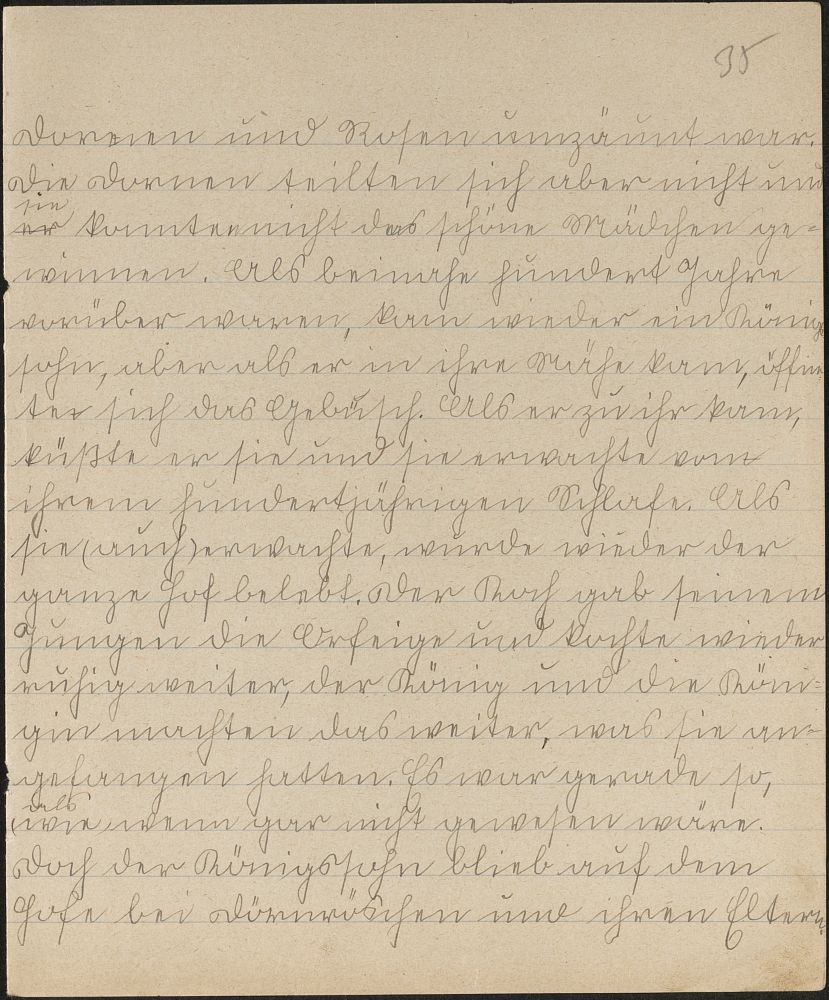 35
Dornen und Rosen umzäunt war.
Die Dornen teilten sich aber nicht und
sie
er konnten nicht das schöne Mädchen ge=
winnen. Als beinahe hundert Jahre
vorüber waren, kam wieder ein Königs
sohn, aber als er in ihre Nähe kam, öffne
te sich das Gebüsch. Als er zu ihr kam,
küßte er sie und sie erwachte vom
ihrem hundertjährigen Schlafe. Als
sie (auch) erwachte, wurde wieder der
ganze Hof belebt. Der Koch gab seinem
Jungen die Orfeige und kochte wieder
ruhig weiter, der König und die Köni=
gin machten das weiter, was sie an=
gefangen hatten. Es war gerade so,
als
(wie) wenn gar nicht gewesen wäre.
Doch der Königssohn blieb auf dem
Hofe bei Dörnröschen und ihren Eltern.